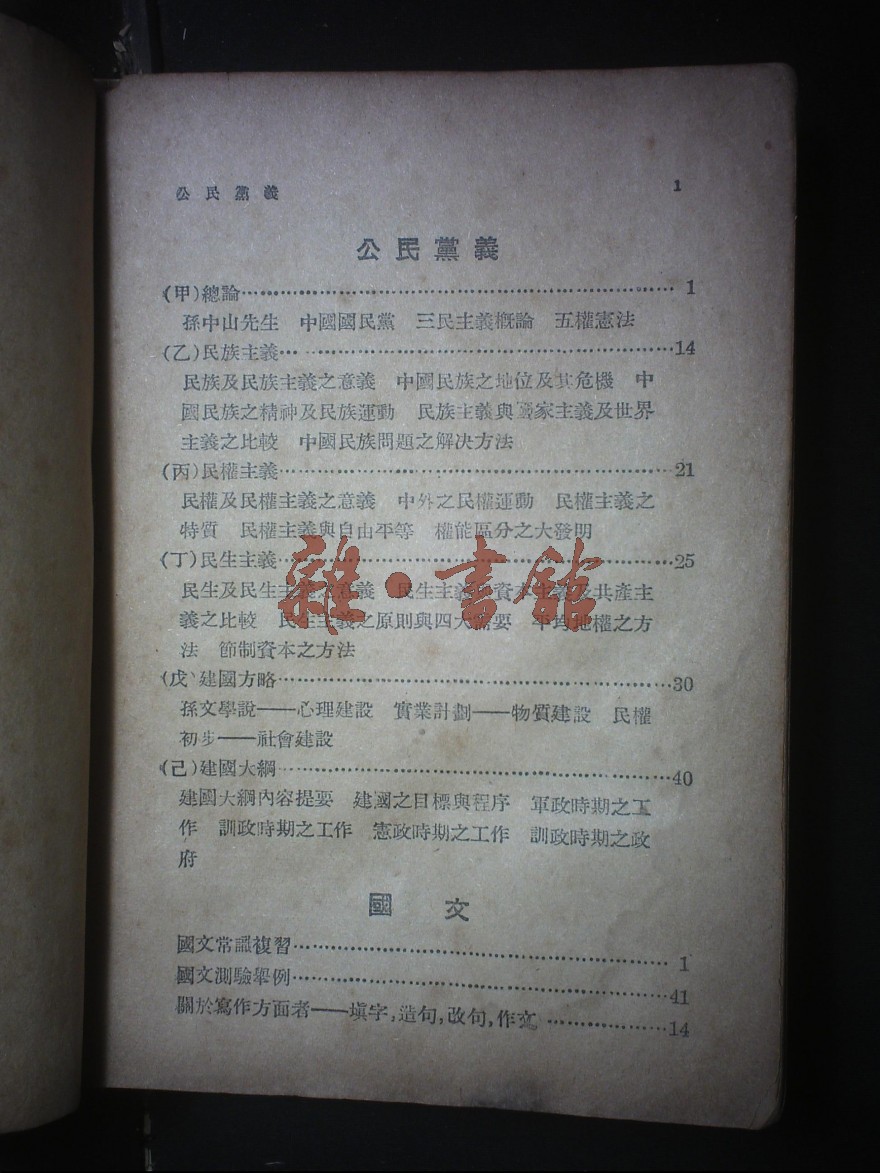 公民黨義 1
公民黨義
(甲)總論 1
孫中山先生 中國國民黨 三民主義概論 五權憲法
(乙)民族主義 14
民族及民族主義之意義 中國民族之地位及其危機 中
國民族之精神及民族運動 民族主義與國家主義及世界
主義之比較 中國民族問題之解決方法
(丙)民權主義 21
民權及民權主義之意義 中外之民權運動 民權主義之
特質 民權主義與自由平等 權能區分之大發明
(丁)民生主義 25
民生及民生主義之意義 民生主義 資本主義及共產主
義之比較 民生主義之原則與四大需要 平均地權之方
法 節制資本之方法
(戊)建國方略 30
孫文學說——心理建設 實業計劃——物質建設 民權
初步——社會建設
(己)建國大綱 40
建國大綱內容提要 建國之目標與程序 軍政時期之工
作 訓政時期之工作 憲政時期之工作 訓政時期之政
府
國文
國文常識複習 1
國文測驗舉例 41
關於寫作方面者——填字,造句,改句,作文 14
雜·書館